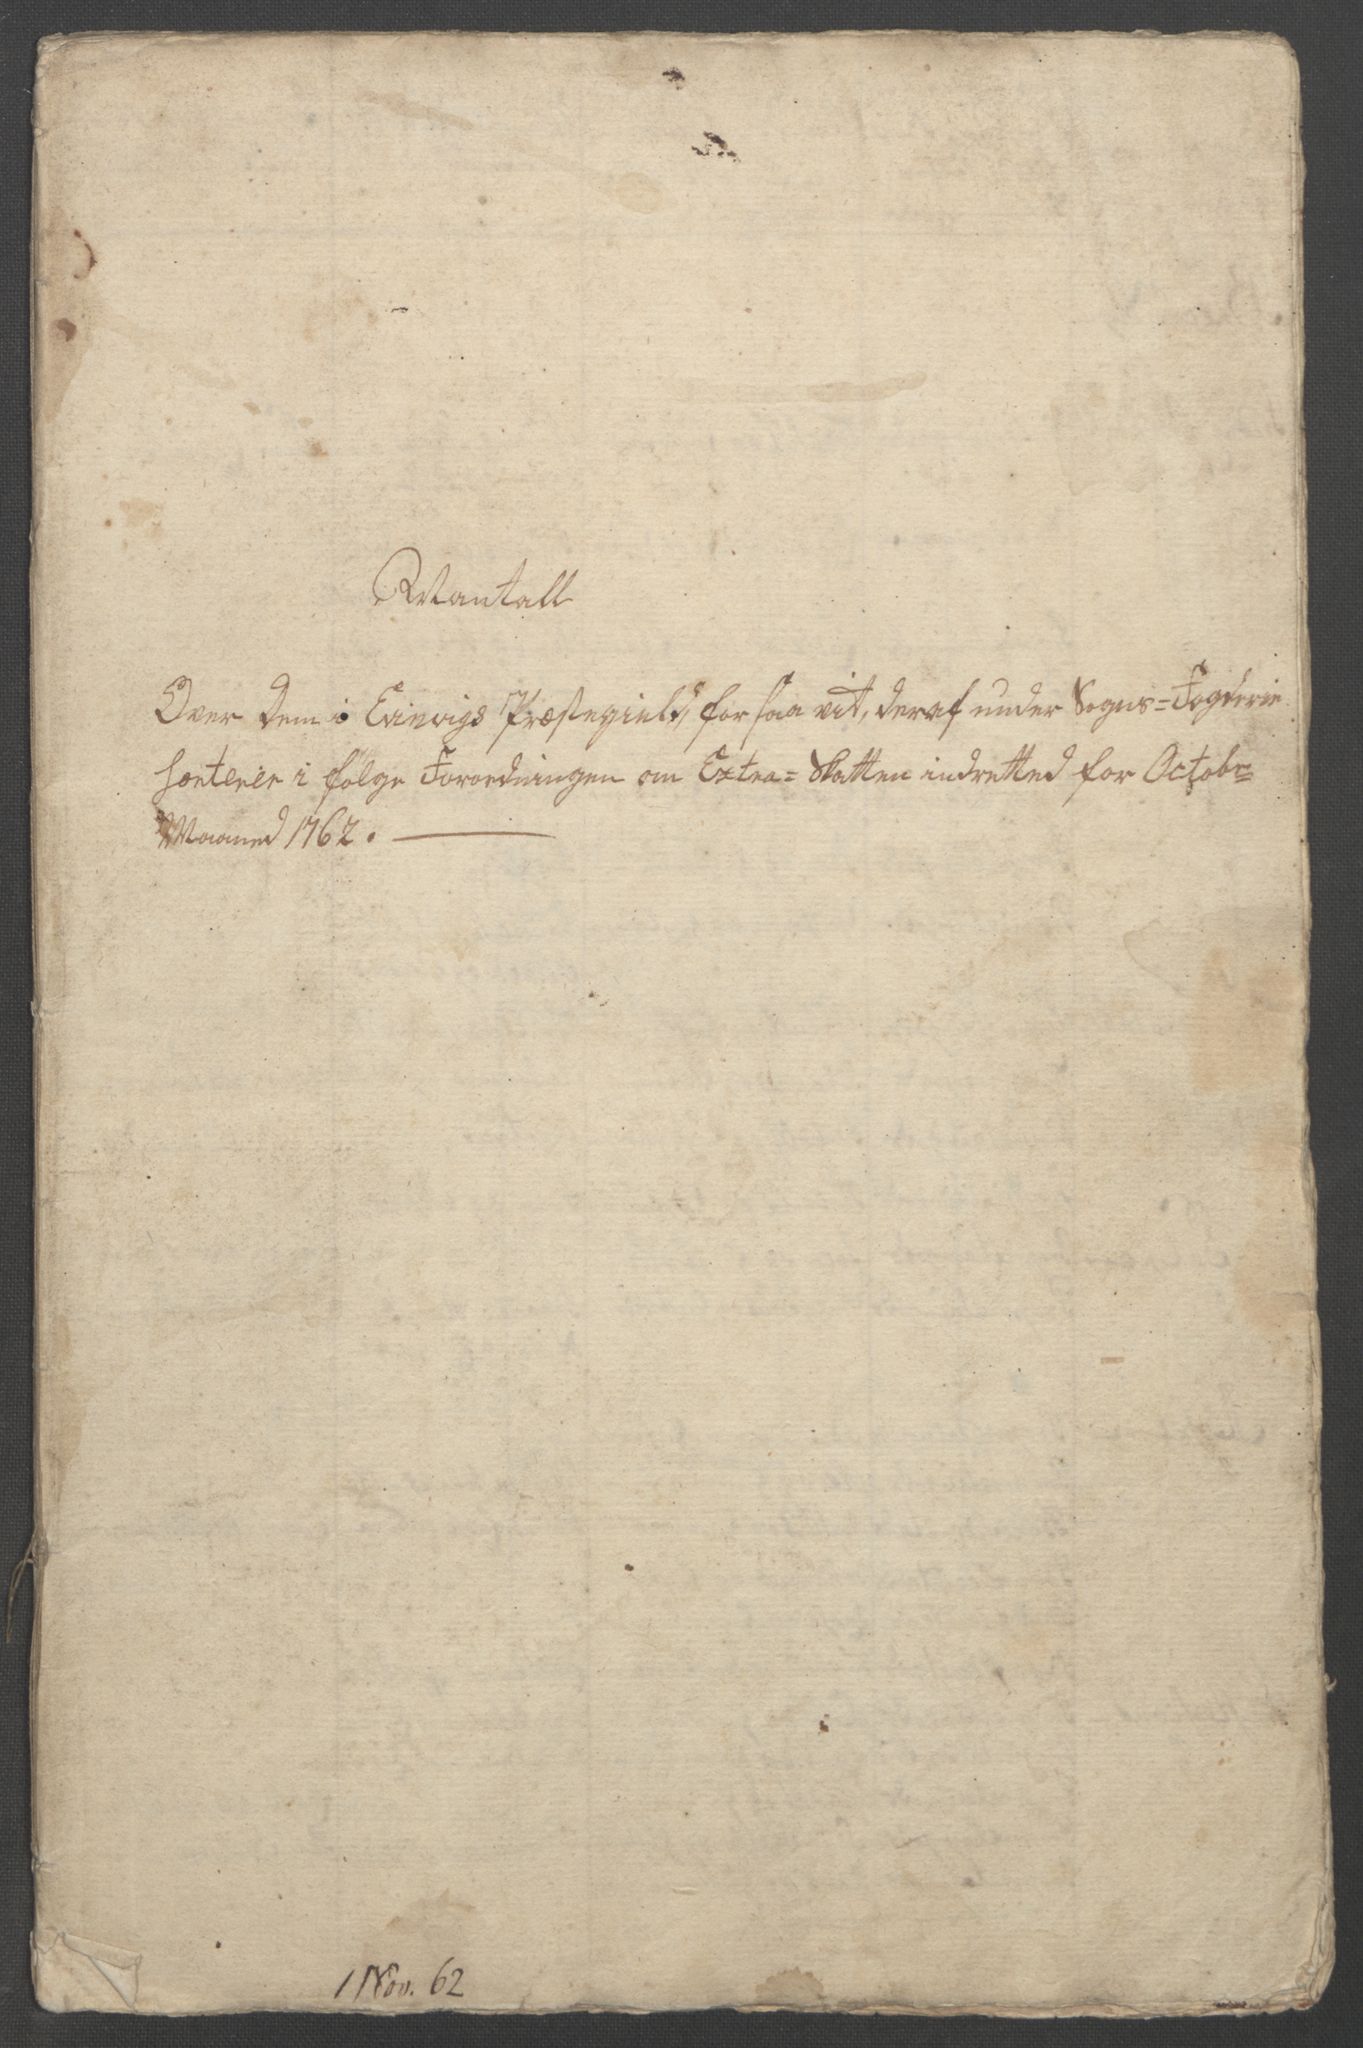 Mantall
Over dem i Evinvigs Præstegield, for saa vit, deraf under Sogns=Fogderie
sorterer i følge Forordningen om Extra=Skatten indretted for Octobr=
Maaned 1762.
1 Nov. 62